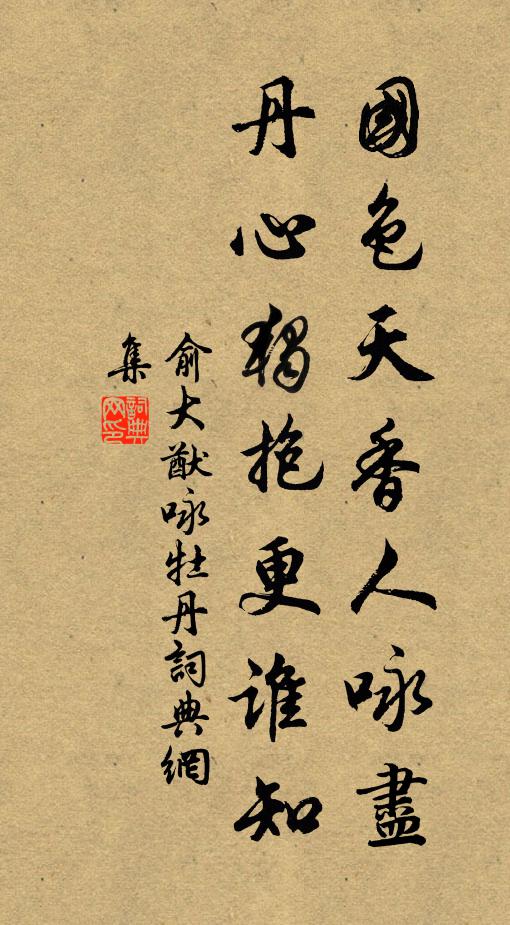 國色天香人咏盡
丹心獨抱更誰知
俞大猷咏牡丹詞典網
集
詞典网印